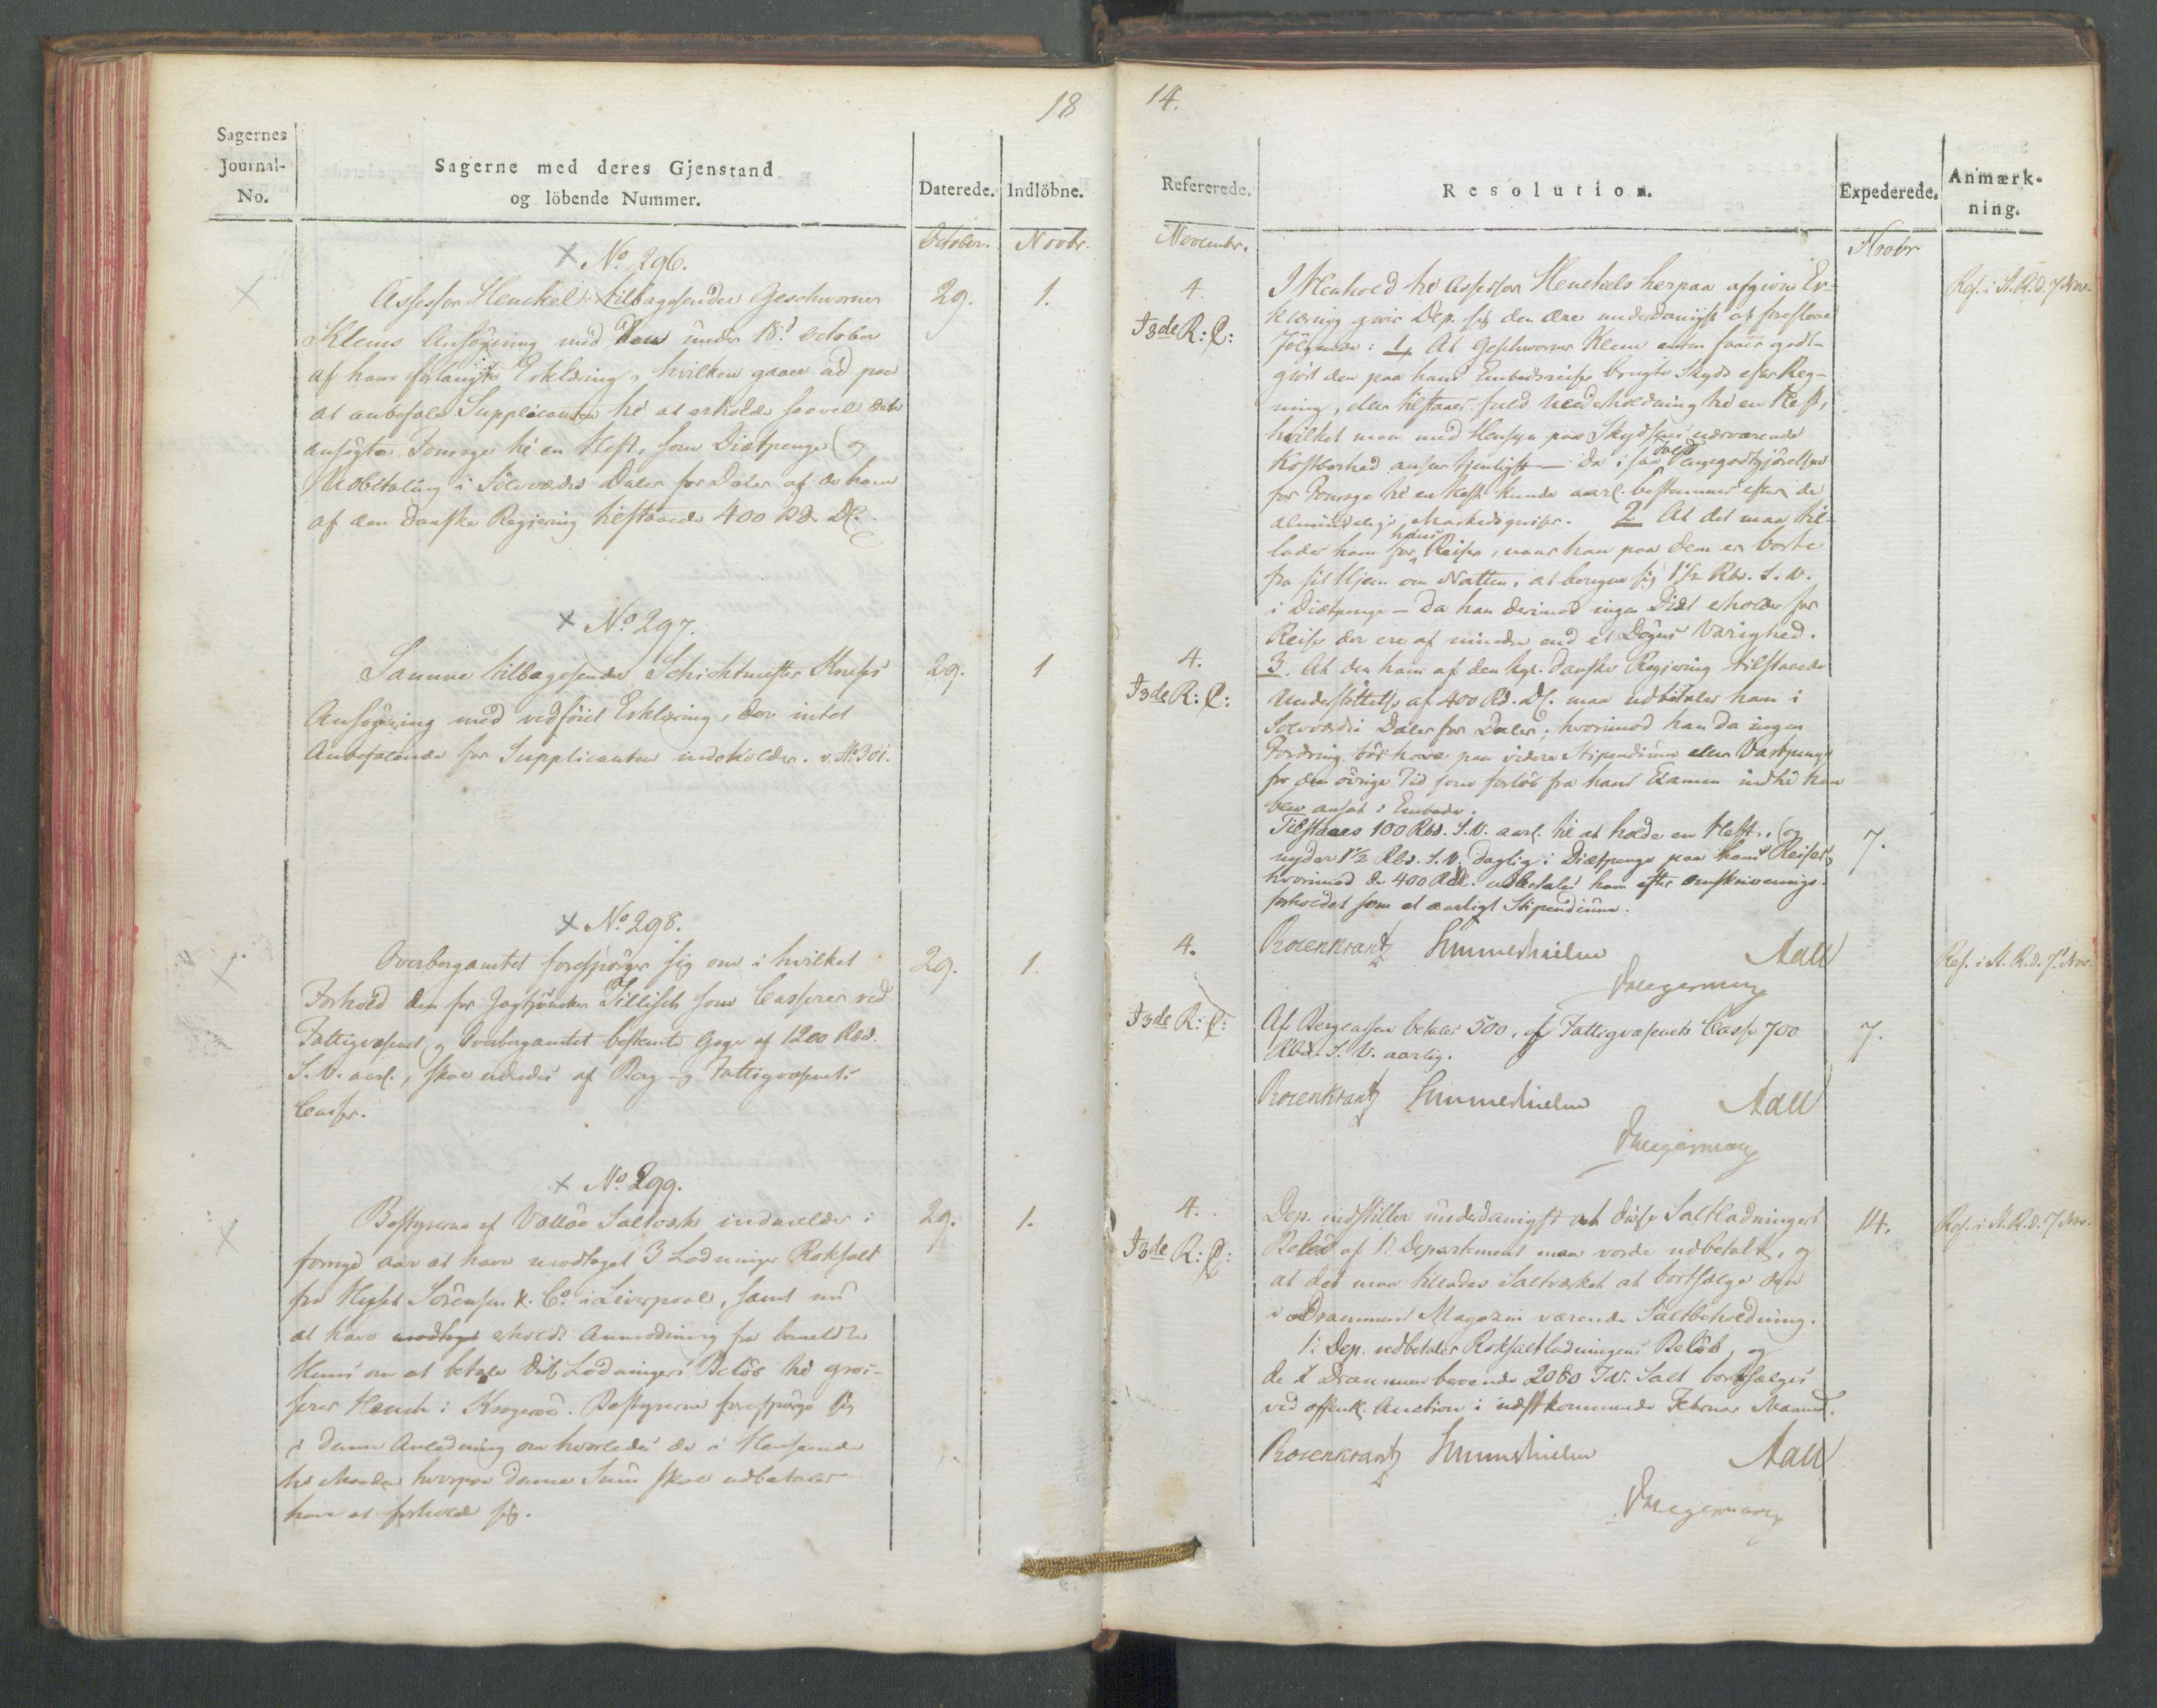 18
Sagernes
Journal-
No.
Sagerne med deres Gjenstand
og löbende Nummer.
Daterede.
Indlöbne.
October.
Novbr.
× No. 296.
×
29.
1.
Assessor Henckel tilbagesender Geschworner
Klems Ansøgning med den under 18d October
af ham forlangte Erklæring, hvilken gaaer ud paa
at anbefale Supplicanten til at erholde saavel den
ansøgte Fourage til en Hest, som Diætpenge og
Udbetaling i Sölvværdie Daler for Daler af de ham
af den danske Regjering tilstaaede 400 Rd. DC.
× No. 297.
29.
1
Samme tilbagesender Schichtmester Knephs
Ansøgning med vedföiet Erklæring, der intet
Anbefalende for Supplicanten indeholder. v. No 301.
× No. 298.
×
29.
1.
Overbergamtet forespörger sig om i hvilket
Forhold den for Jagtjunker Tillisch som Casserer ved
Fattigvæsenet og Overbergamtet bestemte Gage af 1200 Rbd.
S. V. aarl., skal udredes af Berg- og Fattigvæsenets
Casser.
× No. 299.
×
29.
1.
Bestyrerne af Vallöe Saltværk indmelder i
forrige Aar at have modtaget 3 Ladninger Roksalt
fra Huset Sörensen & Co. i Liverpool, samt nu
at have modtaget erholdt Anmodning fra bemeldte
Huus om at betale disse Ladningers Belöb til Gros-
serer Heuch i Kragerøe. Bestyrerne forespörge sig
i denne Anledning om hvorledes de i Henseende
til Maaden hvorpaa denne Sum skal udbetales
have at forholde sig.
14.
Refererede.
Resolution.
Expederede.
Anmærk-
ning.
Novembr.
Novbr
4.
F3de R: P:
Ref. i St. R. d. 7 Nov.
I Henhold til Assessor Henckels herpaa afgivne Er-
klæring giver Dep. sig den Ære underdanigst at foreslaae
Fölgende: 1, At Geschworner Klem enten faaer godt-
gjort den paa hans Embedsreiser brugte Skyds efter Reg-
ning, eller tilstaaes fuld Underholdning til en Hest,
hvilket man med Hensyn paa Skydsens nærværende
Kostbarhed anseer tjenligst — da i saa Fald Pengegodtgjörelsen
for Fourage til en Hest kunde aarl. bestemmes efter de
almindelige Markedspriser. 2 At det maa til-
lades ham for hans Reiser, naar han paa dem er borte
fra sit Hjem om Natten, at beregne sig 1½ Rbd. S. V.
i Diætpenge — da han derimod ingen Diæt erholder for
Reiser der ere af mindre end et Dögns Varighed.
4.
F3de R: P:
3. At den ham af den kgl. danske Regjering tilstaaede
Understöttelse af 400 Rd. DC. maa udbetales ham i
Sölvværdi Daler for Daler; hvorimod han da ingen
Fordring bör have paa videre Stipendium eller Vartpenge
for den övrige Tid som forlöb fra hans Examen indtil han
blev ansat i Embede.
Tilstaaes 100 Rbd. S. V. aarl. til at holde en Hest, og
nyder 1½ Rbd. S. V. daglig i Diætpenge paa hans Reiser,
hvorimod de 400 Rd. udbetales ham efter Omskrivnings-
forholdet som et aarligt Stipendium.
7.
Rosenkrantz Sommerhielm Aall
Diegerman
4.
F3de R: P:
Ref. i St. R. d. 7 Nov.
Af Bergcassen betales 500, af Fattigvæsenets Casse 700
Rbd. S. V. aarlig.
7.
Rosenkrantz Sommerhielm Aall
4.
F3de R: P:
14.
Ref. i St. R. d. 7 Nov.
Dep. indstiller underdanigst at disse Saltladningers
Belöb af 1: Departement maa vorde udbetalt, og
at det maa tillades Saltværket at bortsælge den
i Drammens Magazin værende Saltbeholdning.
1: Dep. udbetaler Roksaltladningens Belöb, og
de i Drammen beroende 2080 Tdr. Salt bortsælges
ved offentl. Auction i næstkommende Februar Maaned.
Rosenkrantz Sommerhielm Aall